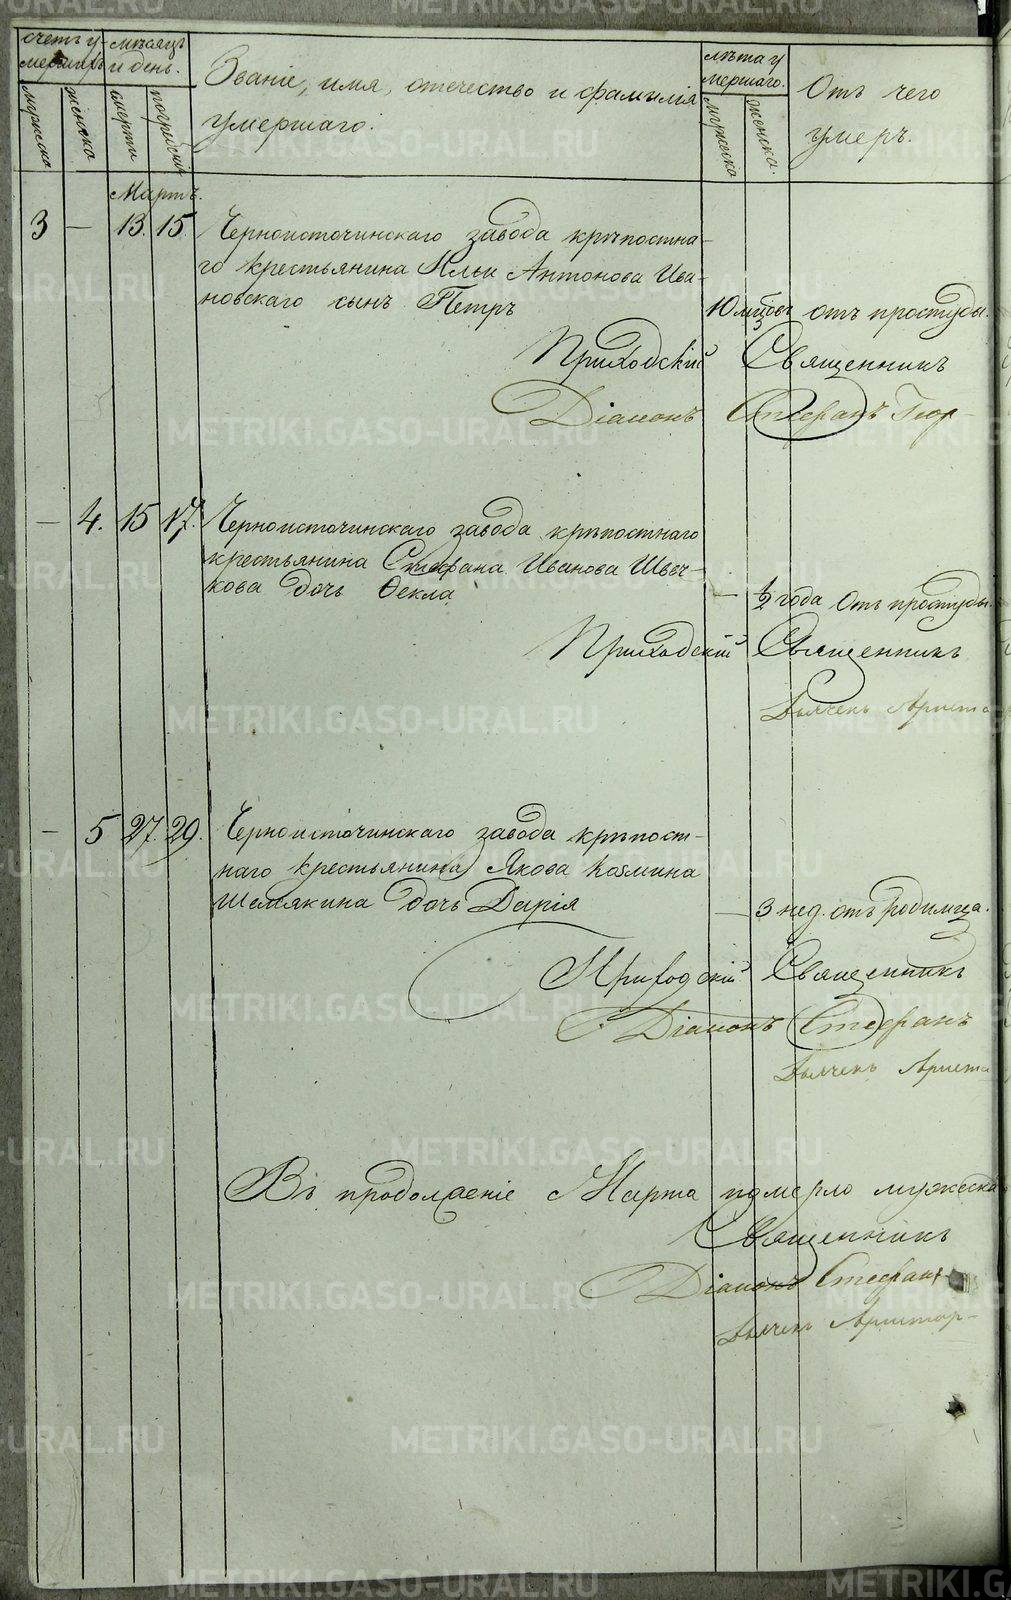 счетъ у-
мершихъ
мѣсяцъ
и день.
Званіе, имя, отечество и фамилія
умершаго.
лѣта у
мершаго.
Отъ чего
умеръ.
мужеска
женска
смерти
погребенія
мужеска
женска.
Мартъ.
3 — 13. 15 Черноисточинскаго завода крѣпостна-
го крестьянина Ильи Антонова Ива-
новскаго сынъ Петръ
10 мцовъ отъ простуды.
Приходскій Священникъ
Діаконъ Стефанъ Геор-
— 4. 15 17. Черноисточинскаго завода крѣпостнаго
крестьянина Стефана Иванова Швеч-
кова дочь Ѳекла
— ½ года Отъ простуды.
Приходскій Священникъ
Дьячекъ Ариста
— 5 27. 29. Черноисточинскаго завода крѣпост-
наго крестьянина Якова Козмина
Шемякина дочь Дарія
— 3 нед. отъ родимца.
Приходскій Священникъ
Діаконъ Стефанъ
Дьячекъ Ариста
Въ продолженіе Марта померло мужеска
Священникъ
Діаконъ Стефанъ
Дьячекъ Аристар-
METRIKI.GASO-URAL.RU